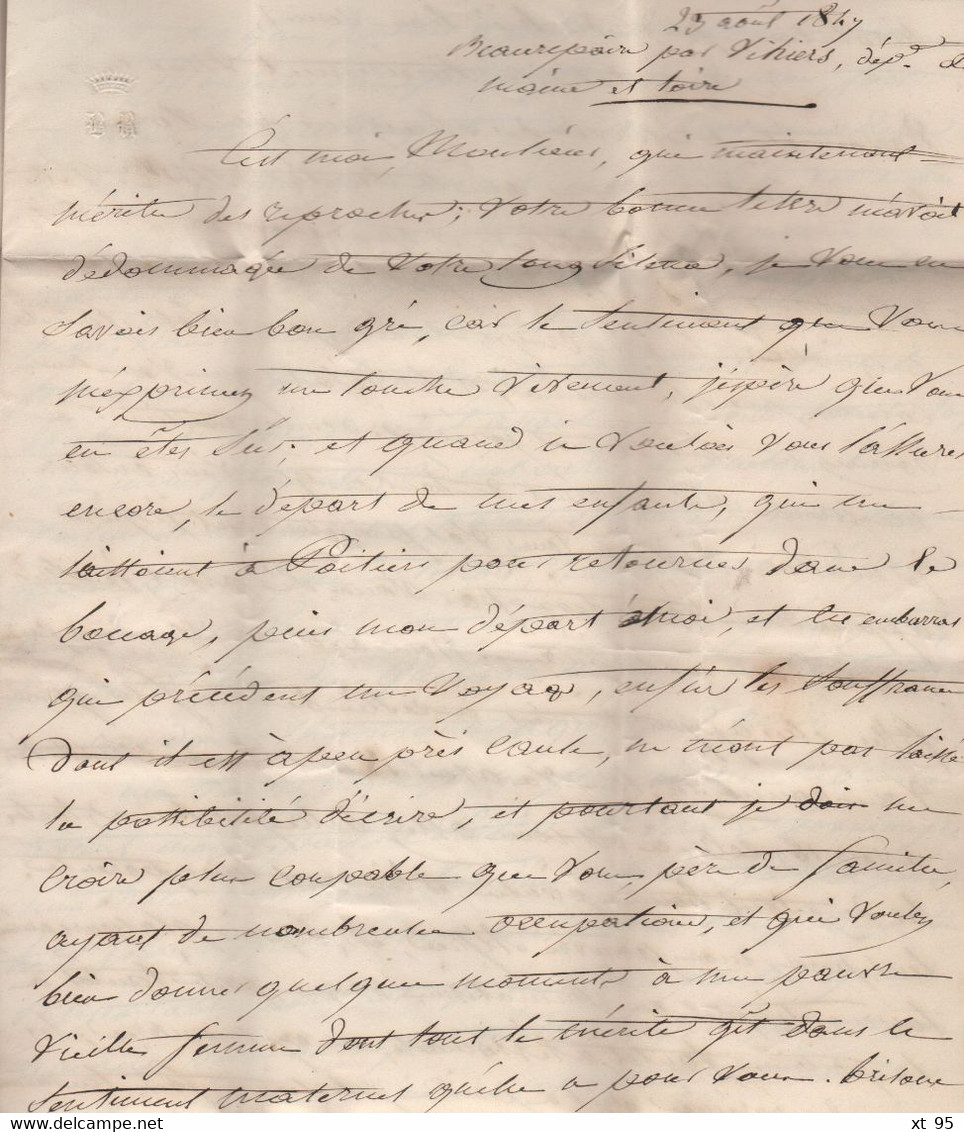 23 août 1847
Beaurepaire par Vihiers, dép.t de
maine et loire
C'est moi, Monsieur, qui maintenant
mérite des reproches; votre bonne lettre m'avoit
dédommagée de votre long silence, je vous en
savois bien bon gré, car le sentiment que vous
m'exprimez me touche vivement, j'éspère que vous
en êtes sûr; et quand je voulois vous l'assurer
encore, le départ de mes enfants, qui me
laissoient à Poitiers pour retourner dans le
bocage, puis mon départ à moi, et les embarras
qui précédent un voyage, enfin les souffrances
dont il est àpeu près cause, ne m'ont pas laissé
la possibilité d'écrire, et pourtant je dois me
croire plus coupable que vous, père de famille,
ayant de nombreuses occupations, et qui voulez
bien donner quelques moments à une pauvre
vieille femme dont tout le mérite gît dans le
sentiment maternel qu'elle a pour vous.
xt 95